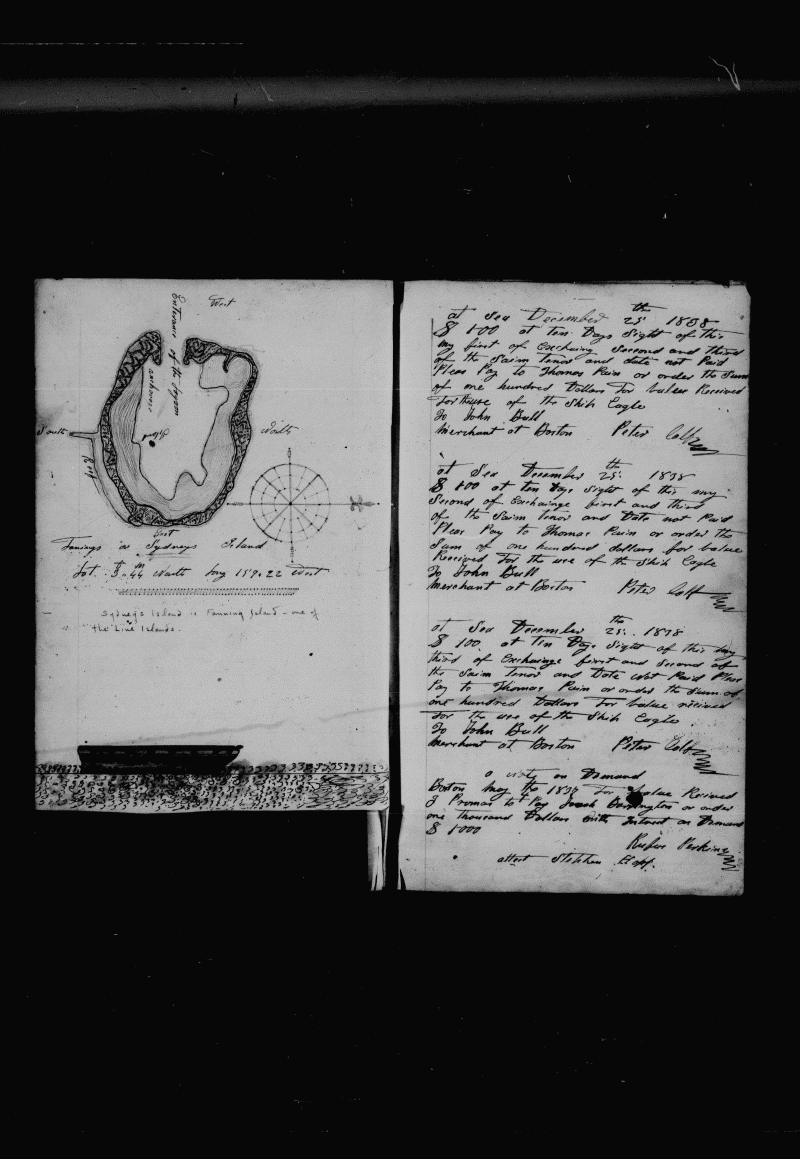 West
Enterance of the lagoon
anchorage
South
Reef
North
East
Fannings or Sydneys Island
Lat. 3..44 North Long 159..22 West
Sydney's Island is Fanning Island - one of
the Line Islands.
at Sea December 25th 1838
$ 100 at ten Days Sight of this
my first of Exchainge Second and third
of the Saim tenor and date not Paid
Pleas Pay to Thomas Pain or order the Sum
of one hundred Dollars For value Received
For the use of the Ship Eagle
To John Bull
Merchant at Boston Peter Coff
at Sea December 25th 1838
$ 100 at ten Days Sight of this my
Second of Exchainge first and third
of the Saim Tenor and Date not Paid
Pleas Pay to Thomas Pain or order the
Sum of one hundred dollars for value
Received For the use of the Ship Eagle
To John Bull
Merchant at Boston Peter Coff
at Sea December 25th 1838
$ 100 at ten Days Sight of this my
third of Exchainge first and Second of
the Saim Tenor and Date Not Paid Pleas
Pay to Thomas Pain or order the Sum of
one hundred Dollars For value received
For the use of the Ship Eagle
To John Bull
Merchant at Boston Peter Coff
a note on Demand
Boston May the 1838 For value Recived
I Promas to Pay or order
one Thousand Dollars with Intrest on Demand
$ 1000
Rufus Perkins
attest Stephen